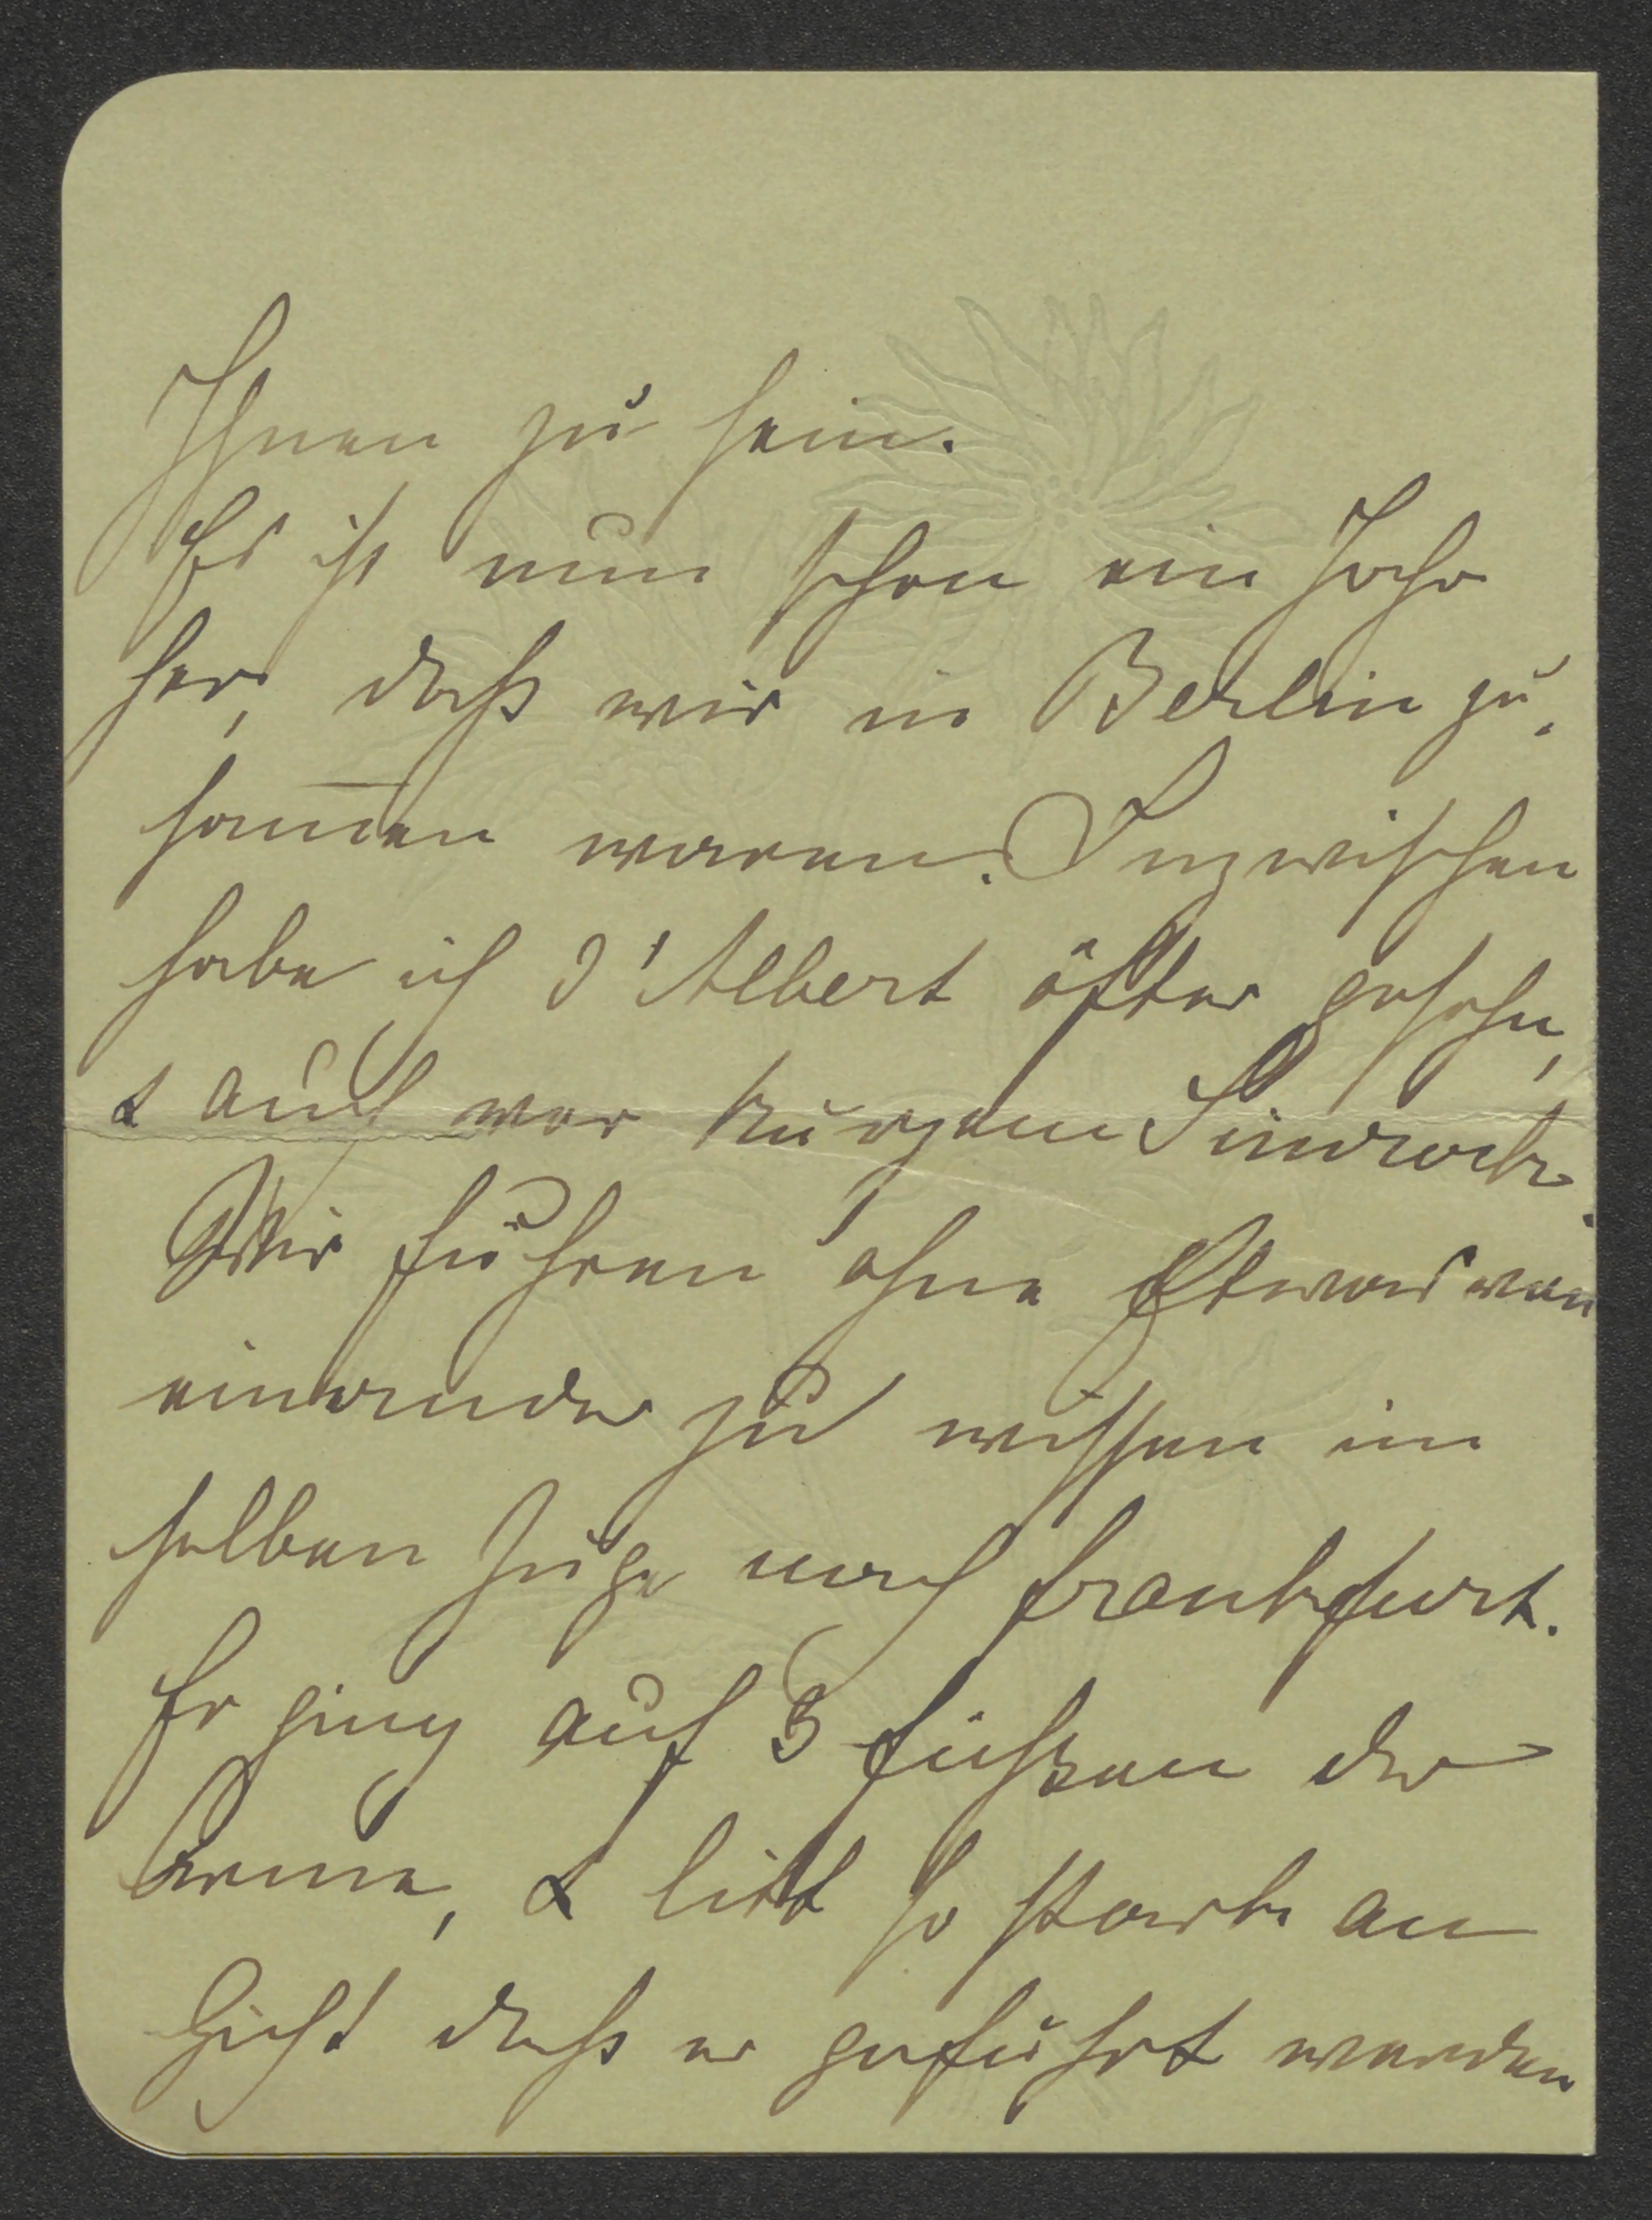 Ihnen zu sein.
Es ist nun schon ein Jahr
her, daß wir in Berlin zu-
sam̅en waren. Inzwischen
habe ich d'Albert öfter gesehn,
& auch vor kurzem Simrock.
Wir fuhren ohne Etwas von
einander zu wissen im
selben Zuge nach Frankfurt.
Er ging auf 3 Füßen der
Arme, & litt so stark an
Gicht daß er geführt werden